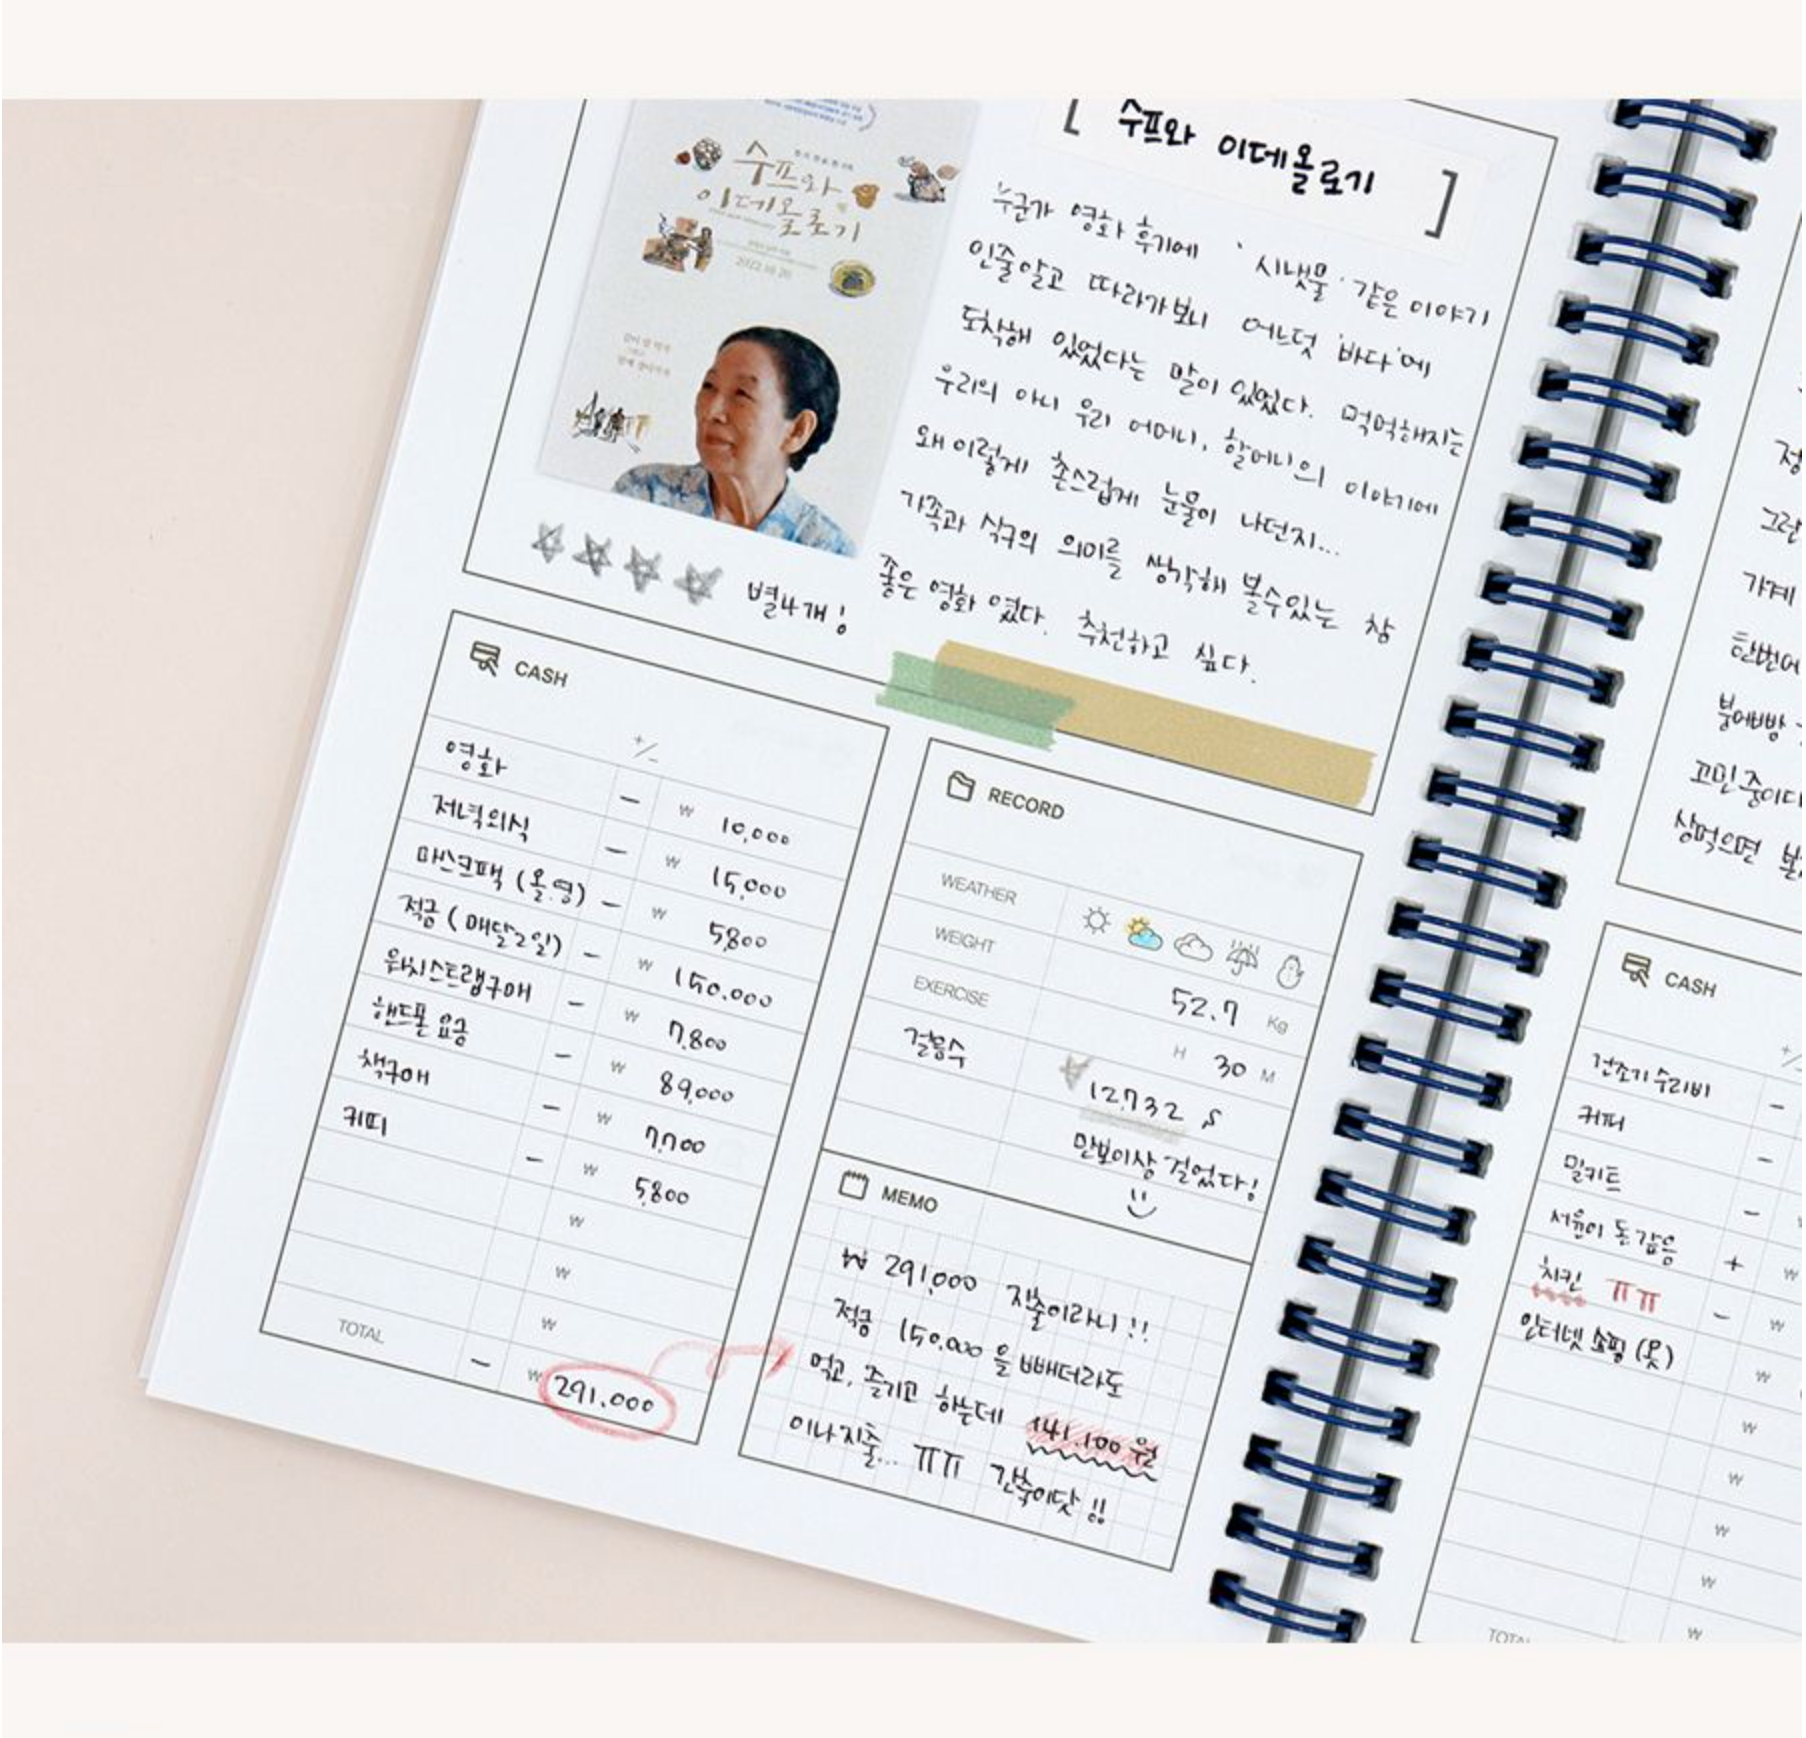 수프와
이데올로기
2022.10.20
[ 수프와 이데올로기 ]
누군가 영화 후기에 '시냇물' 같은 이야기
인줄알고 따라가보니 어느덧 '바다'에
도착해 있었다는 말이 있었다. 먹먹해지는
우리의 아니 우리 어머니, 할머니의 이야기에
왜 이렇게 촌스럽게 눈물이 나던지...
가족과 식구의 의미를 생각해 볼수있는 참
좋은 영화 였다. 추천하고 싶다.
별4개!
CASH
+/-
영화 - ₩ 10,000
저녁외식 - ₩ 15,000
마스크팩 (올.영) - ₩ 5,800
적금 (매달2일) - ₩ 150.000
워치스트랩구매 - ₩ 7,800
핸드폰 요금 - ₩ 89,000
책구매 - ₩ 7,700
커피 - ₩ 5,800
₩
₩
₩
TOTAL - ₩ 291.000
RECORD
WEATHER
WEIGHT 52.7 Kg
EXERCISE H 30 M
걸음수 12,732 S
만보이상 걸었다!
MEMO
₩ 291,000 지출이라니!!
적금 150.000을 빼더라도
먹고, 즐기고 하는데 141.100원
이나 지출... ㅠㅠ 긴축이닷!!
정
그런
가계
한번에
붕어빵
고민중이다
상먹으면
CASH
+/
건조기수리비 -
커피 -
밀키트 -
서윤이 돈갚음 + ₩
치킨 ㅠㅠ - ₩
인터넷 쇼핑 (옷) ₩
₩
₩
₩
₩
TOTAL ₩